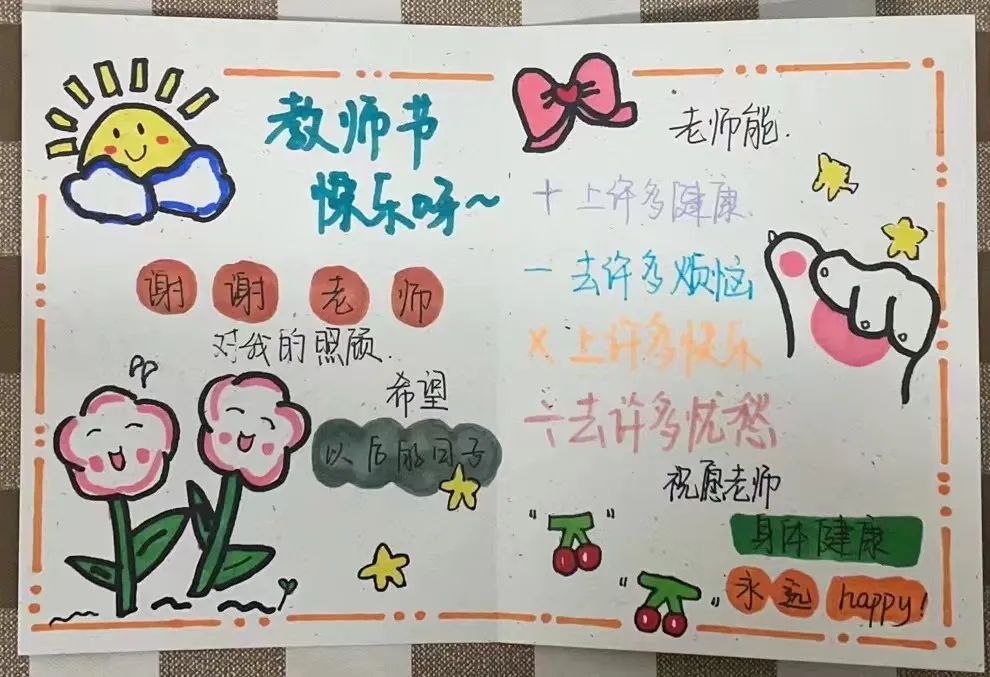 教师节
快乐呀~
谢谢老师
对我的照顾.
希望
以后的日子
老师能.
+ 上许多健康
- 去许多烦恼
× 上许多快乐
÷ 去许多忧愁
祝愿老师
身体健康
永远 happy!